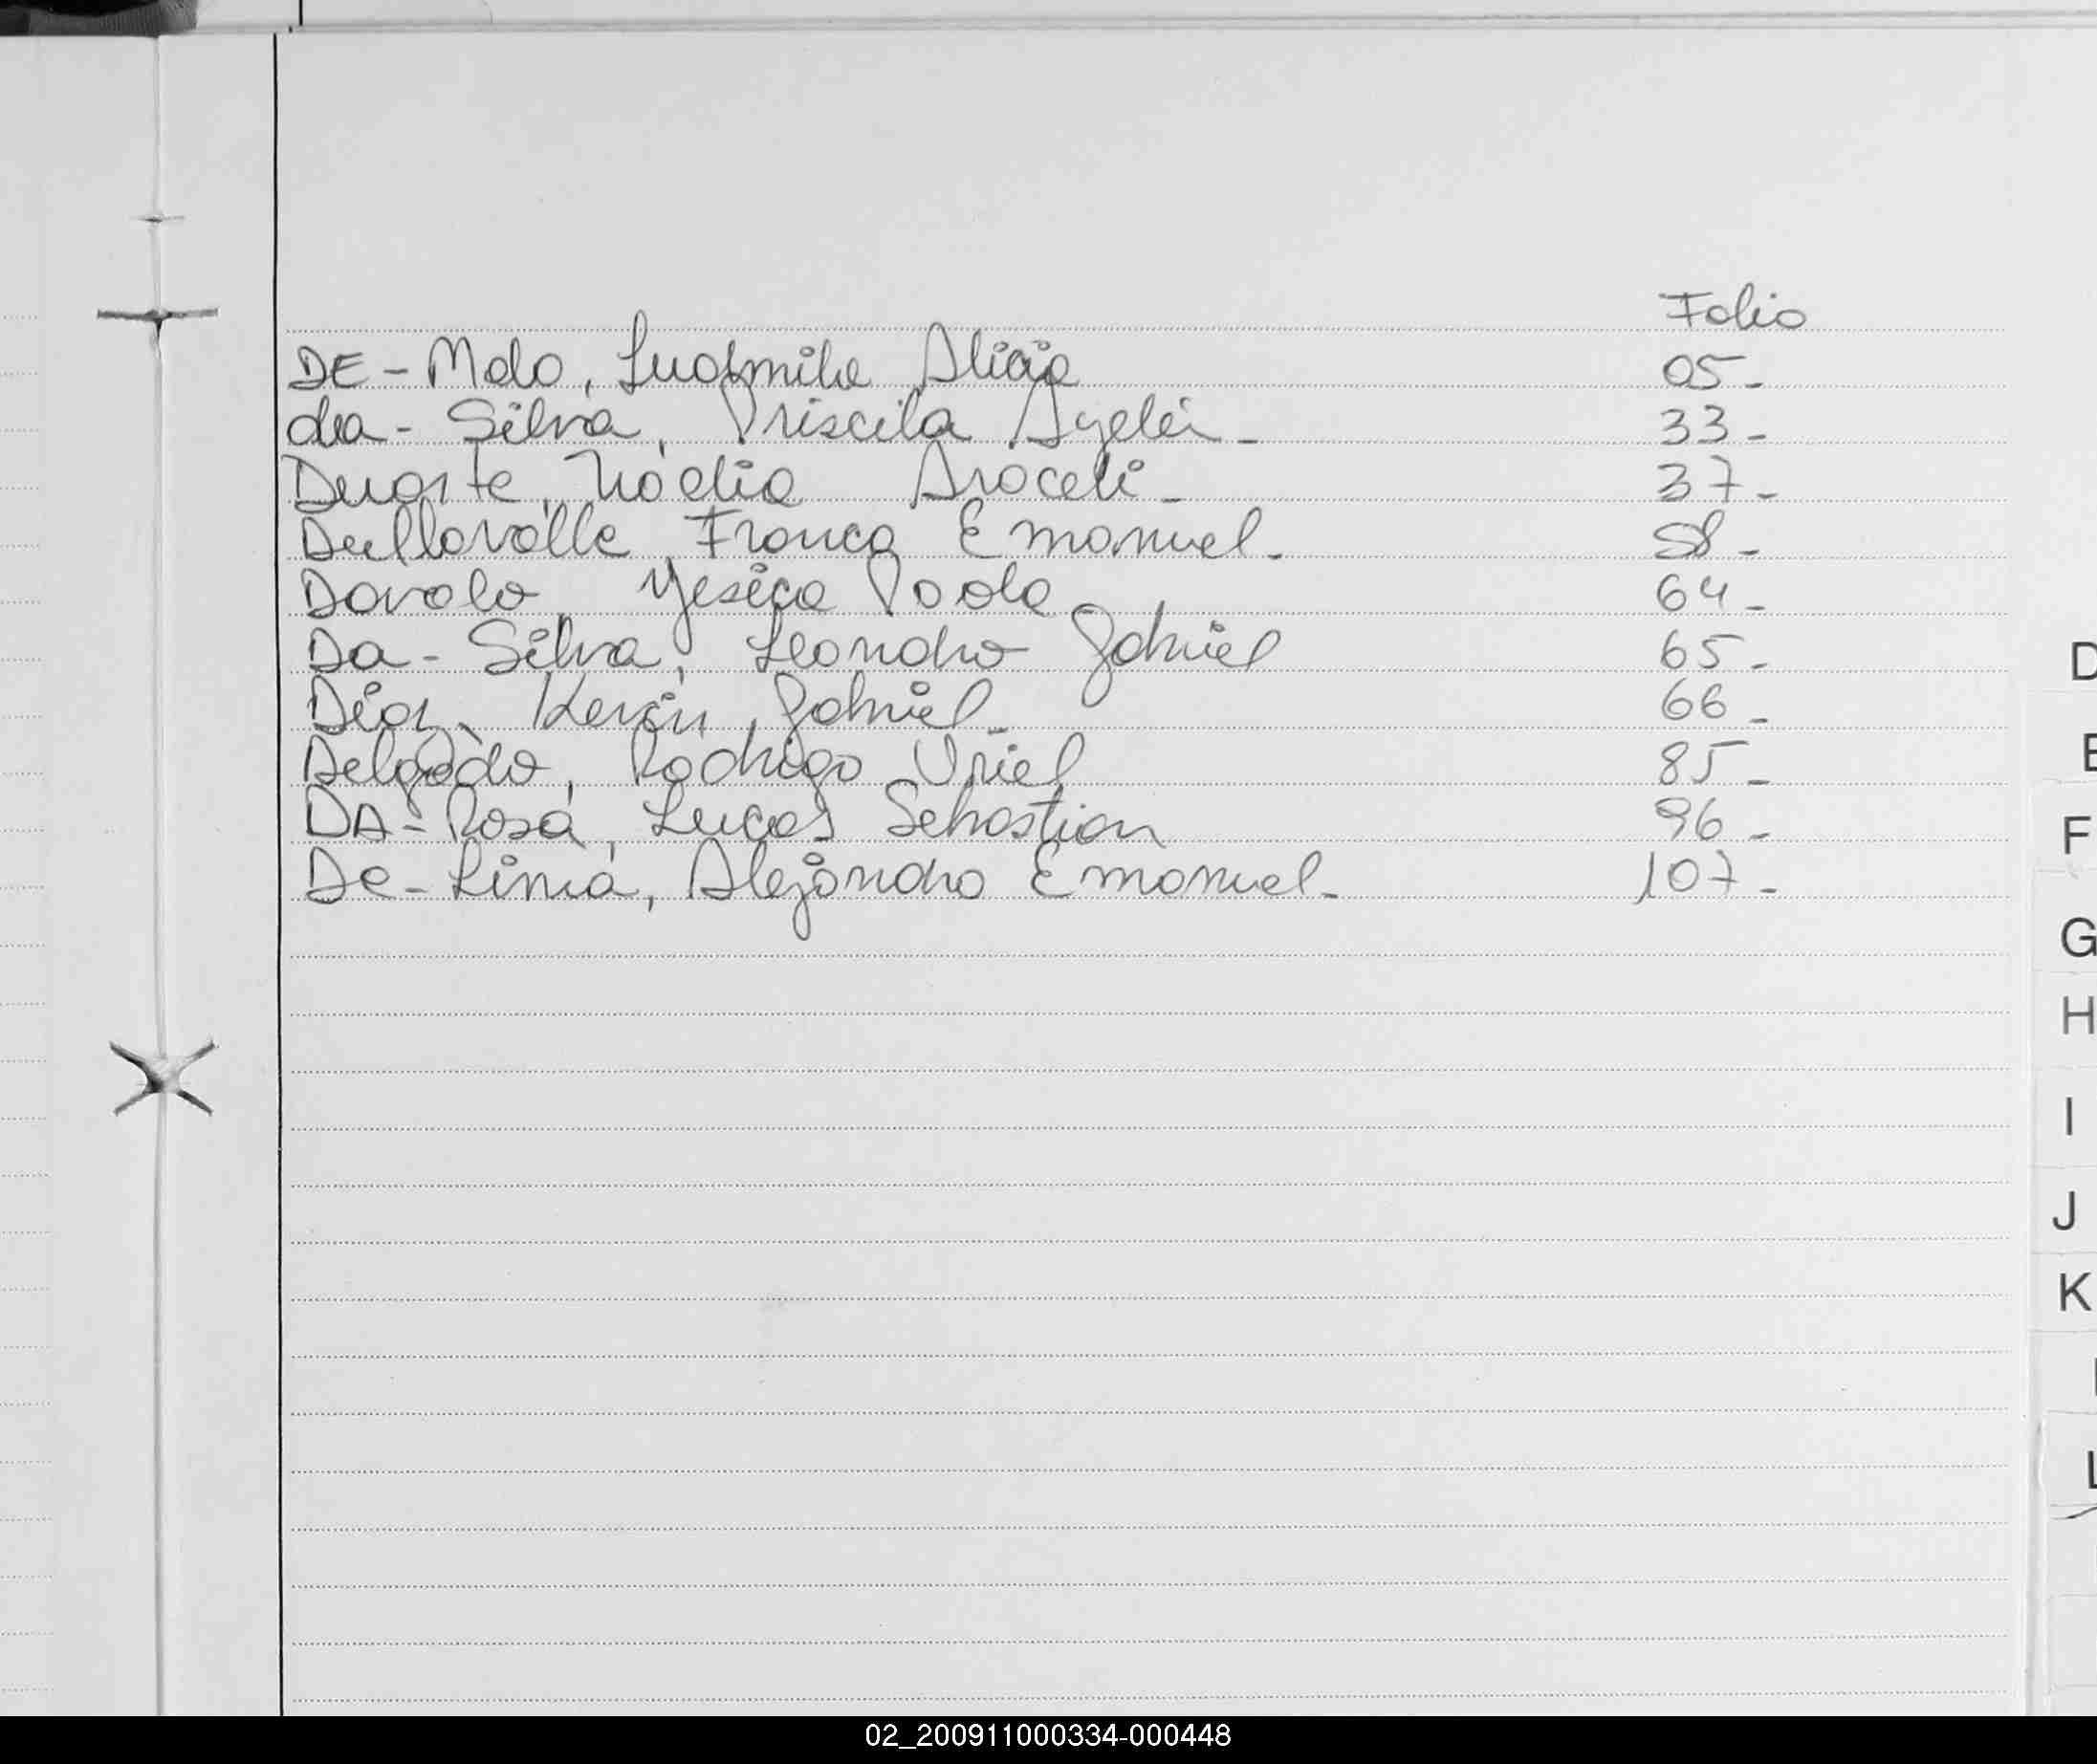 Folio
DE - Melo, Ludmila Alicia 05 -
da - Silva, Priscila Ayelén - 33 -
Duarte, Noelia Araceli - 37 -
Franco Emanuel - 58 -
Davalo, Yesica Paola 64 -
Da - Silva, Leandro Gabriel 65 -
Diaz, Kevin, Gabriel - 66 -
Delgado, Rodrigo Uriel 85 -
DA - Rosa, Lucas Sebastian 96 -
De - Lima, Alejandro Emanuel - 107 -
D
E
F
G
H
I
J
K
L
02_200911000334-000448